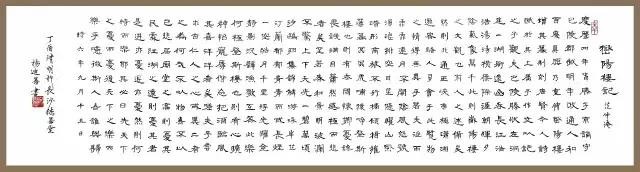 嶽陽樓記 范仲淹
慶曆四年春滕子京謫守
巴陵郡越明年政通人和
百廢具興乃重修嶽陽樓
增其舊制刻唐賢今人詩
賦於其上屬予作文以記
之予觀夫巴陵勝狀在洞
庭一湖銜遠山吞長江浩
浩湯湯橫無際涯朝暉夕
陰氣象萬千此則嶽陽樓
之大觀也前人之述備矣
然則北通巫峽南極瀟湘
遷客騷人多會于此覽物
之情得無異乎若夫霪雨
霏霏連月不開陰風怒號
濁浪排空日星隱曜山嶽
潛形商旅不行檣傾楫摧
薄暮冥冥虎嘯猿啼登斯
樓也則有去國懷鄉憂讒
畏譏滿目蕭然感極而悲
者矣至若春和景明波瀾
不驚上下天光一碧萬頃
沙鷗翔集錦鱗游泳岸芷
汀蘭郁郁青青而或長煙
一空皓月千里浮光躍金
靜影沉璧漁歌互答此樂
何極登斯樓也則有心曠
神怡寵辱偕忘把酒臨風
其喜洋洋者矣嗟夫予嘗
求古仁人之心或異二者
之為何哉不以物喜不以
己悲居廟堂之高則憂其
民處江湖之遠則憂其君
是進亦憂退亦憂然則何
時而樂耶其必曰先天下
之憂而憂後天下之樂而
樂乎噫微斯人吾誰與歸
時六年九月十五日
丁酉清明於長沙德善堂
楊迪善書